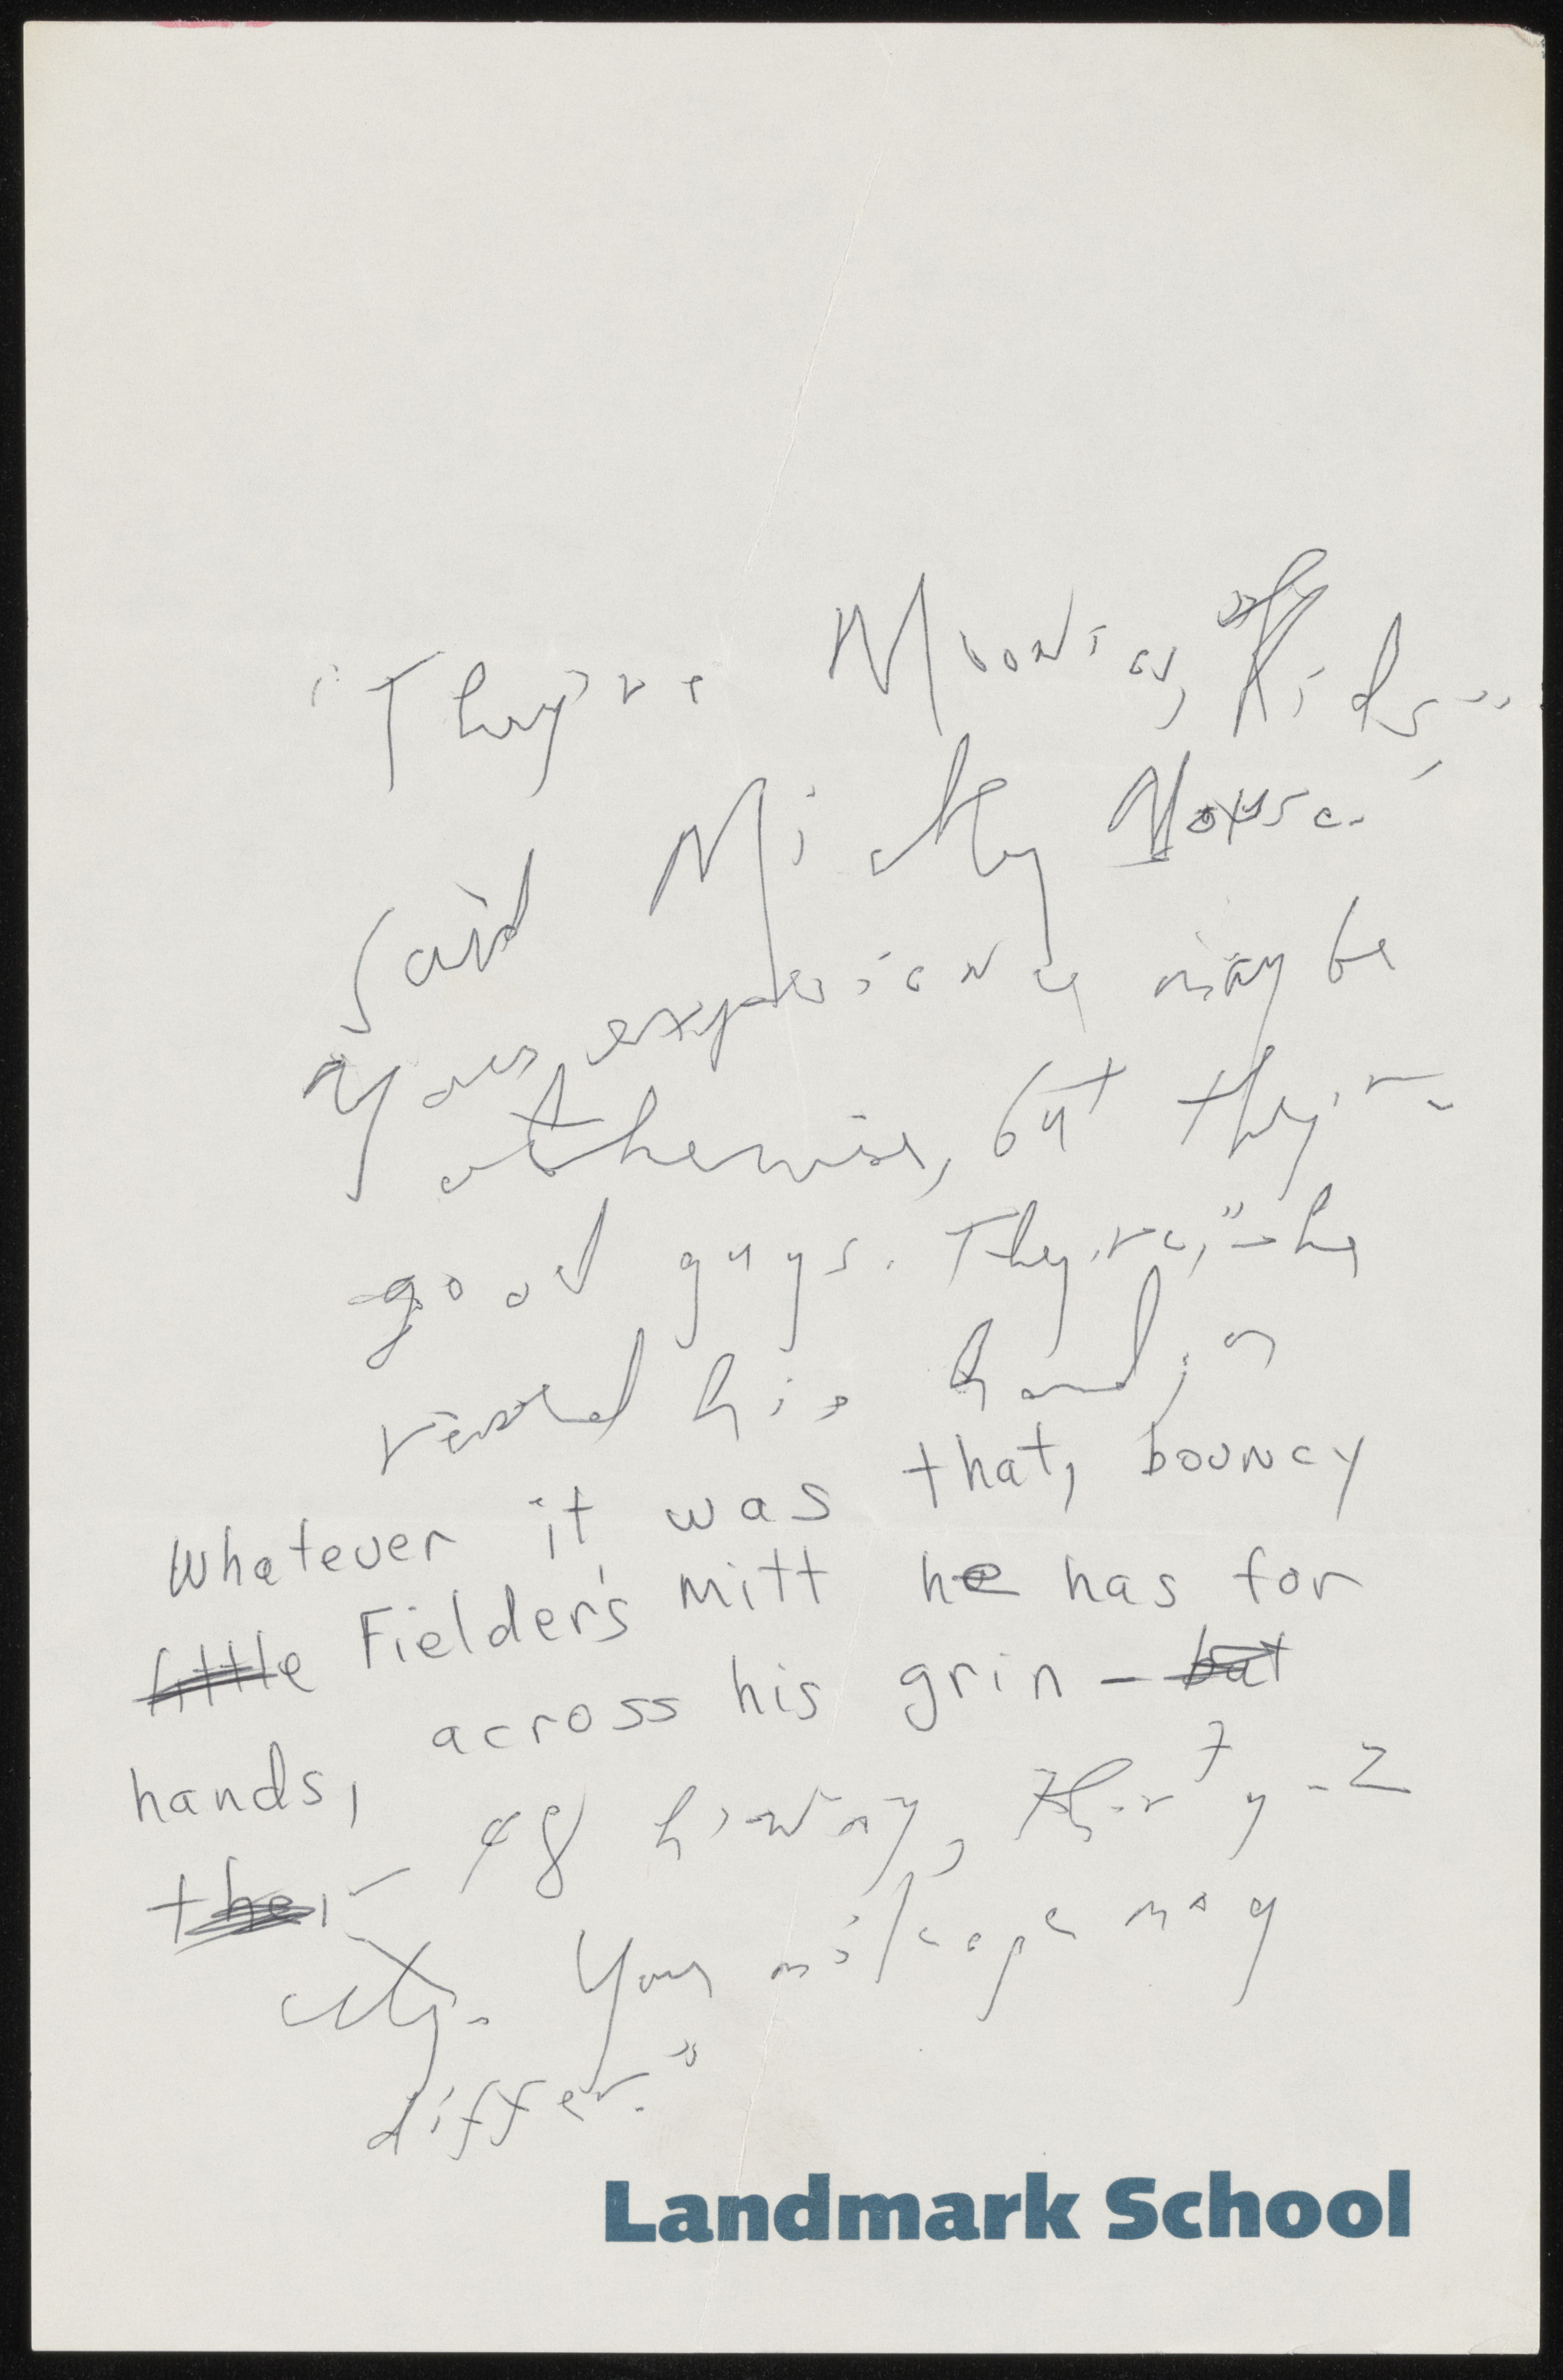 "They're Moonies, Kids,"
said Mickey Mouse.
Your experience may be
otherwise, but they're
good guys. They're," he
his hand, or
Whatever it was that, bouncy
little Fielder's mitt he has for
hands, across his grin – but
their
Your mileage may
differ."
Landmark School